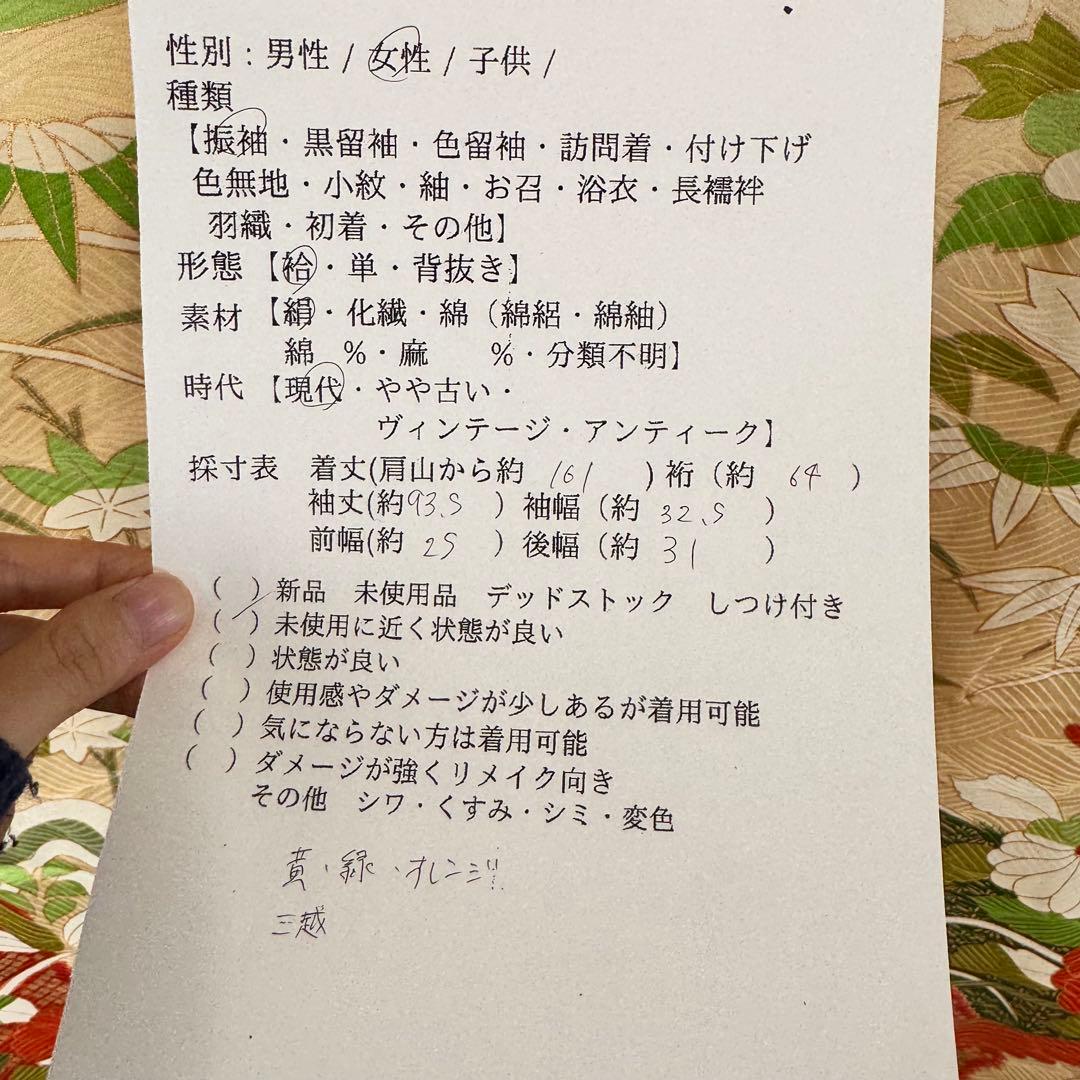 性別：男性 / 女性 / 子供 /
種類
【振袖・黒留袖・色留袖・訪問着・付け下げ
色無地・小紋・紬・お召・浴衣・長襦袢
羽織・初着・その他】
形態【袷・単・背抜き】
素材【絹・化繊・綿（綿絽・綿紬）
綿 %・麻 %・分類不明】
時代【現代・やや古い・
ヴィンテージ・アンティーク】
採寸表 着丈(肩山から約 161 ) 裄（約 64 ）
袖丈(約93.5 ）袖幅（約 32.5 ）
前幅(約 25 ）後幅（約 31 ）
（ ）新品 未使用品 デッドストック しつけ付き
（/）未使用に近く状態が良い
（ ）状態が良い
（ ）使用感やダメージが少しあるが着用可能
（ ）気にならない方は着用可能
（ ）ダメージが強くリメイク向き
その他 シワ・くすみ・シミ・変色
黄・緑・オレンジ
三越